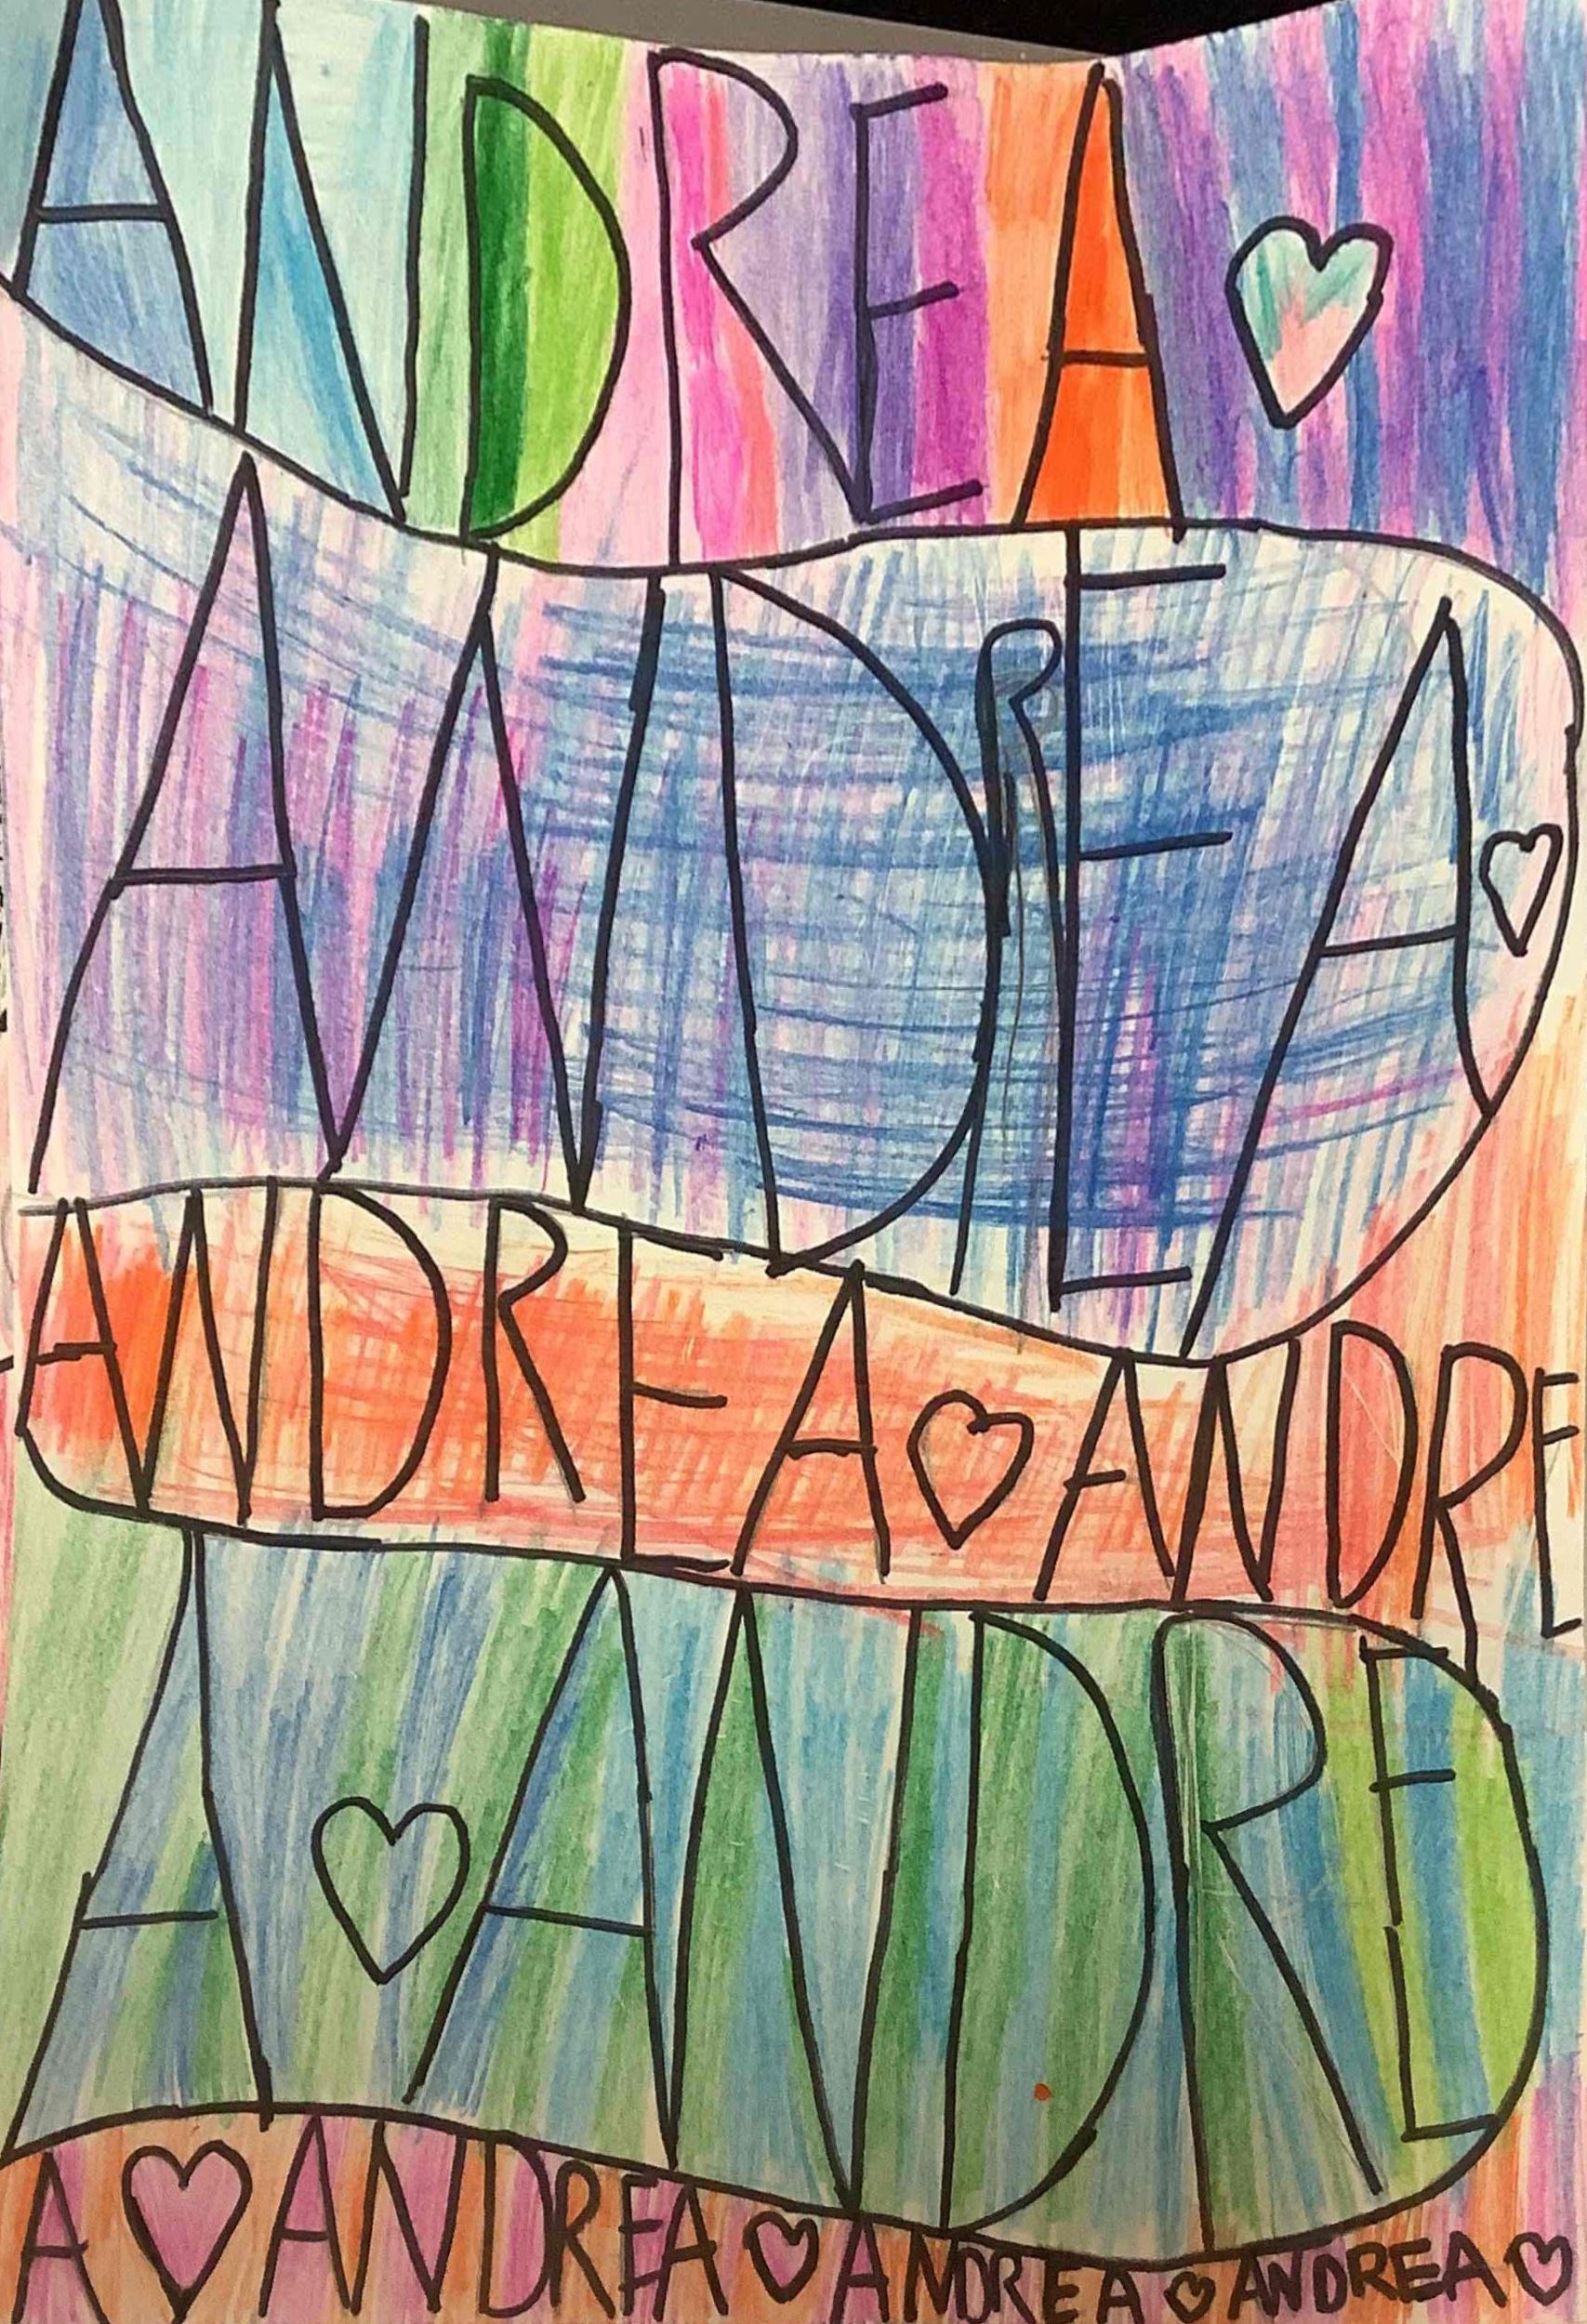 ANDREA ♡
ANDREA ♡
ANDREA ♡ ANDRE
A ♡ ANDRE
A ♡ ANDREA ♡ ANDREA ♡ ANDREA ♡